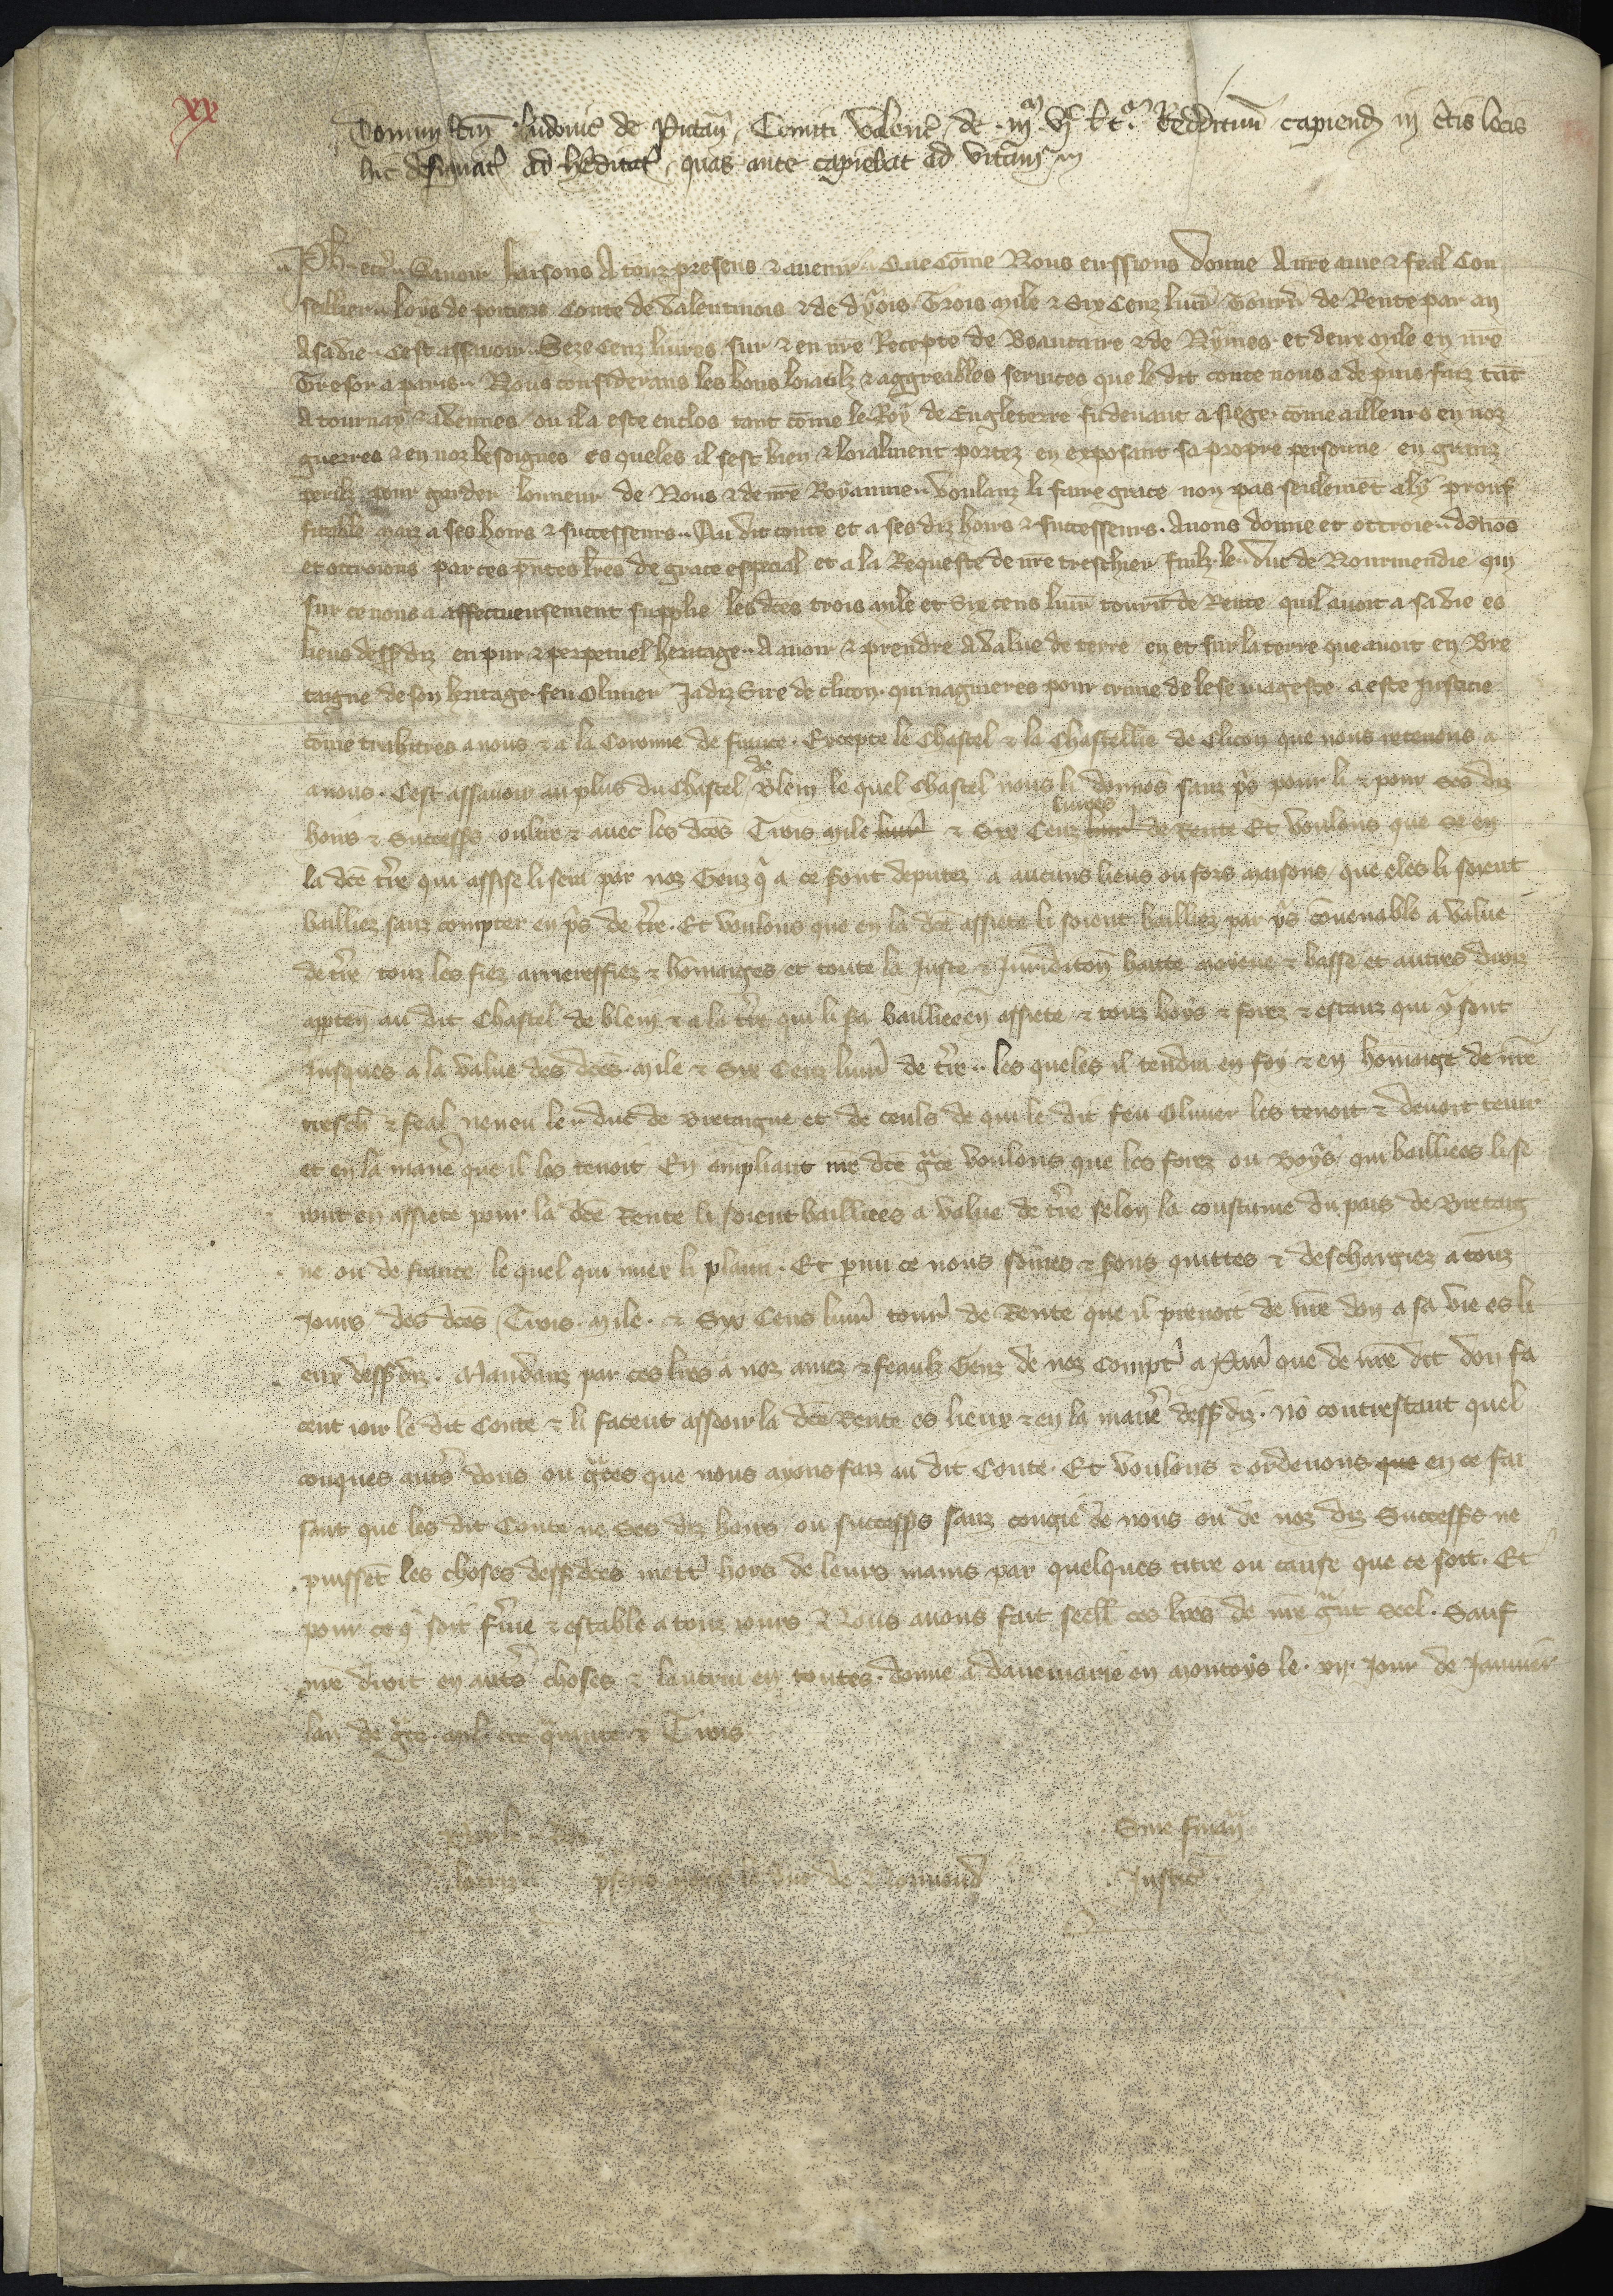 xx
Donum factum Ludovic de Pictav, Comiti Valent, de iiiᵐ viᶜ l t. Reddituum capiend in certis locis
hic designat ad heditat, quas ante capiebat ad vitam
Ph etc. Savoir faisons A touz presens & avenir. Que come Nous eussions donne A nre ame & feal Con
seillier Loys de poitiers Conte de Valentinois & de dyois Trois mile & Six Cenz livr tourn de Rente par an
A sa vie. Cest assavoir. Seze Cenz livres sur & en nre Recepte de Beaucaire & de Nymes. et deux mile en nre
Tresor a paris. Nous considerans les bons loiaulz & aggreables services que le dit conte nous a de puis faiz tant
A tournay & a Vennes ou il a este enclos tant come le Roy de Engleterre fu devant a siege. come ailleurs en noz
guerres & en noz besoignes es queles il sest bien & loialment portez en exposant sa propre personne en granz
perilz pour garder lonneur de Nous & de nre Royaume. Voulanz li faire grace non pas seulemet a ly prouf
fitable maiz a ses hoirs & successeurs. Au dit conte et a ses diz hoirs & successeurs. Avons donne et ottroie. donnos
et ottroions par ces pntes lres de grace especial et a la Requeste de nre treschier filz le duc de Normendie qui
sur ce nous a affectueusement supplie les dces trois mile et Six cens livr tourn de Rente quil avoit a sa vie es
lieus dessdiz en pur & perpetuel heritage. A avoir & prendre A value de terre en et sur la terre que avoit en Bre
taigne de son heritage feu Olivier Jadiz Sire de clicon. qui nagueres pour crime de lese mageste a este Justicie
come trahitres a nous & a la Coronne de france. Excepte le Chastel & la Chastellie de Clicon que nous retenons a
a nous. Cest assavoir au plus du Chastel de Blein le quel chastel nous li donnos sanz pris pour li & pour ses diz
hoirs & Successrs oultre & avec les dces Trois mile livr & Six Cenz livr livres de Rente Et voulons que se en
la dce tre qui assise li sera par noz Genz q a ce sront deputez a aucuns lieus ou fors maisons, que eles li soient
bailliez sanz compter en pris de tre. Et voulons que en la dce assiete li soient bailliez par pris covenable a value
de tre touz les fiez arrierefiez & homaiges et toute la Juste & Juridicion haute moiene & basse et autres droiz
appten au dit Chastel de blein & a la tre qui li sra bailliee en assiete & touz boys & forez & estanz qui y sont
Jusques a la value des dces mile & Six Cenz livr de tre. les queles il tendra en foy & en homaige de nre
tresch & feal neveu le duc de Bretaigne et de ceuls de qui le dit feu Olivier les tenoit & devoit tenir
et en la manre que il les tenoit En ampliant nre dce grce voulons que les forez ou Boys qui baillies li se
ront en assiete pour la dce Rente li soient bailliees a value de tre selon la coustume du pais de Bretaig
ne ou de france, le quel qui miex li plaira. Et pmi ce nous somes & srons quittes & deschargiez a touz
Jours des dces Trois mile & Six Cens livr tourn de Rente que il prenoit de nre don a sa vie es li
eux dessdiz. Mandanz par ces lres a noz amez & feaulx Genz de noz Compt a Par que de nre dit don fa
cent ioir le dit Conte & li facent asseoir la dce Rente es lieux & en la manre dessdiz. no contrestant quel
conques autrs dons ou grces que nous ayons faiz au dit Conte. Et voulons & ordenons que en ce fai
sant que les dit Conte ne ses diz hoirs ou successrs sanz congie de nous ou de noz diz Successrs ne
puissent les choses dessdces mettr hors de leurs mains par quelques titre ou cause que ce soit. Et
pour ce q soit frme & estable a touz iours Nous avons fait seell ces lres de nre grnt seel. Sauf
nre droit en autrs choses & lautrui en toutes. donne a Danemarie en Montoys le xij Jour de Janvier
lan de grce mil ccc qrante & Trois
Sine finan
psens mons le duc de Normend Justic